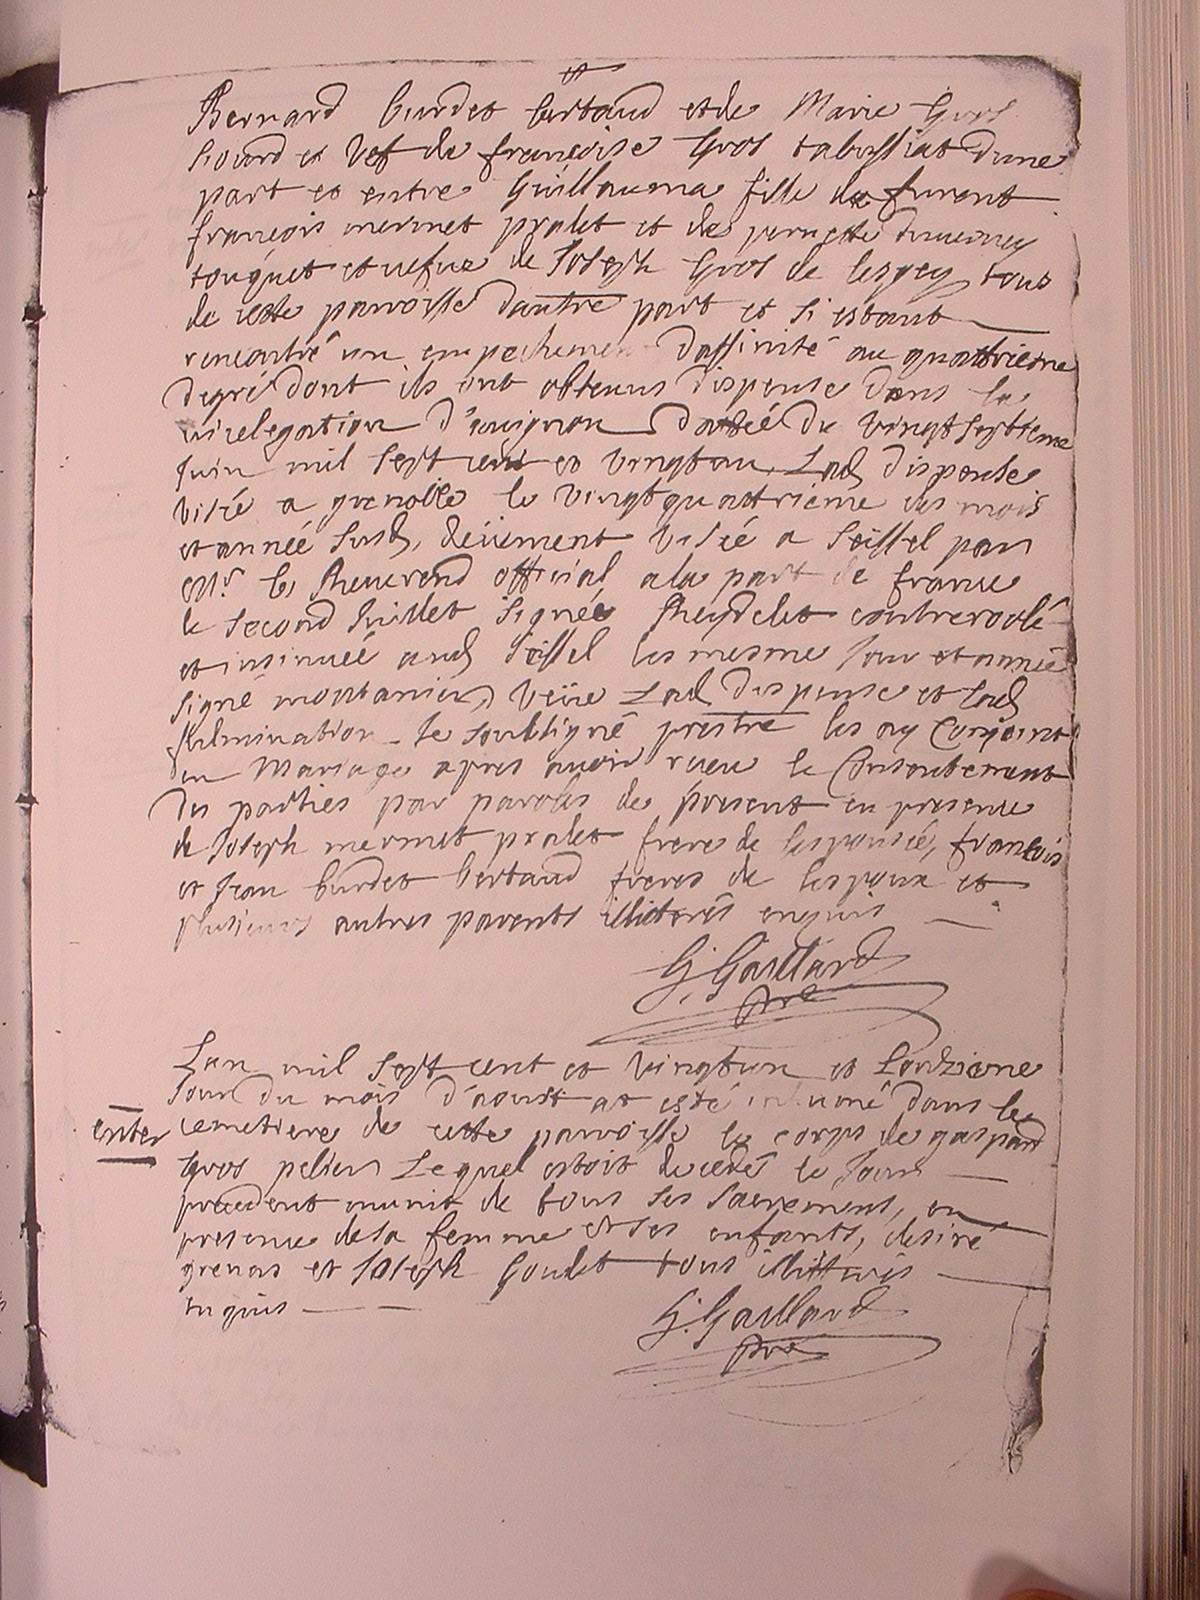 Bernard burdet bertaud et de Marie Gros
et vef de françoise Gros tabussiat dune
part et entre Guillauma fille de furent
françois mermet pralet et de pernette
touquet et vefue de Joseph Gros de lespey tous
de cette parroisse dautre part et si estant
rencontré un empechement daffinité au quattrieme
degré dont ils ont obtenus dispense dans la
vicelegation d'auignon dattée du vingt septieme
Juin mil sept cent et vingtun, Lad dispense
visée a grenoble le vingtquattrieme des mois
et année susd, deüement visée a seissel par
Mr le Reuerend official a la part de france
le second Juillet signée Reydelet controrolé
et insinuée aud seissel les mesme Jour et année
signé montanier, veüe Lad dispense et Lad
fulmination Je soubsigné prestre les ay Conjoint
en Mariage apres auoir receu le Consentement
des parties par paroles de present en presence
de Joseph mermet pralet frere de lespousée, francois
et Jean burdet bertaud freres de lespoux et
plusieurs autres parents illiterés enquis
G. Gaillard
pre
Lan mil sept cent et vingtun et Londzieme
Jour du mois d'aoust at esté inhumé dans le
enter
cemetiere de cette parroisse le corps de gaspard
Gros pelier Lequel estoit decedé le Jour
precedent munit de tous ses sacrements, en
presence de sa femme et ses enfants, desiré
grenas et Joseph Goulet tous illitterés
enquis
G. Gaillard
pre